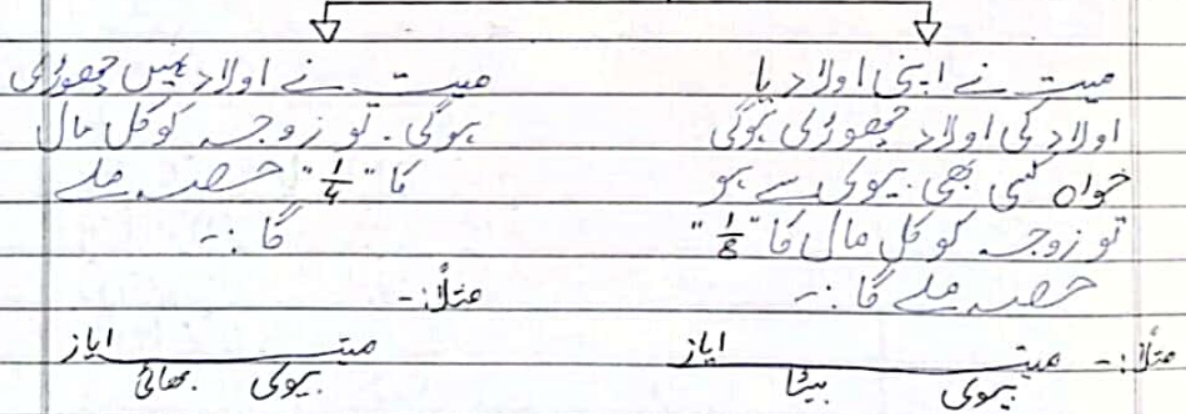 میت نے اپنی اولاد یا
اولاد کی اولاد چھوڑی ہوگی
خواہ کسی بھی بیوی سے ہو
تو زوجہ کو کل مال کا "1/8"
حصہ ملے گا :-
مثلاً :- میت ایاز
بیوی بیٹا
میت نے اولاد نہیں چھوڑی
ہوگی. تو زوجہ کو کل مال
کا "1/4" حصہ ملے
گا :-
مثلاً :-
میت ایاز
بیوی بھائی